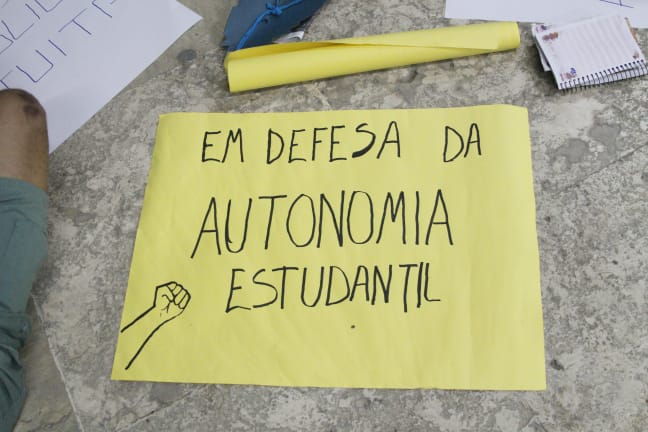 EM DEFESA DA
AUTONOMIA
ESTUDANTIL